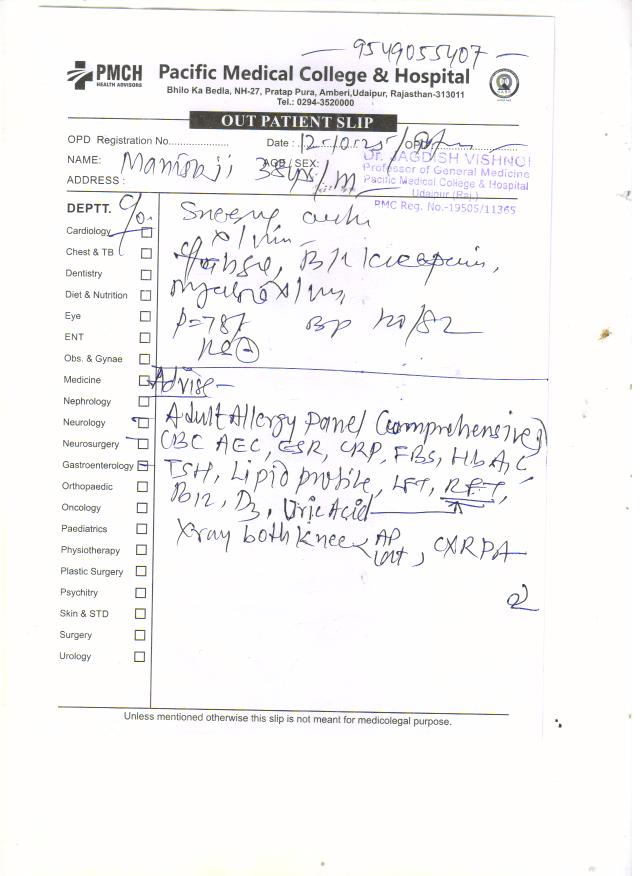 9549055407
PMCH
HEALTH ADVISORS
Pacific Medical College & Hospital
Bhilo Ka Bedla, NH-27, Pratap Pura, Amberi,Udaipur, Rajasthan-313011
Tel.: 0294-3520000
OUT PATIENT SLIP
OPD Registration No.................... Date : OPD
NAME: AGE / SEX: 38 M
Dr. JAGDISH VISHNOI
Professor of General Medicine
Pacific Medical College & Hospital
Udaipur (Raj.)
PMC Reg. No.-19505/11365
ADDRESS :
DEPTT. C/o.
Cardiology
Chest & TB
Dentistry
Diet & Nutrition
Eye
ENT
Obs. & Gynae
Medicine
Nephrology
Neurology
Neurosurgery
Gastroenterology
Orthopaedic
Oncology
Paediatrics
Physiotherapy
Plastic Surgery
Psychitry
Skin & STD
Surgery
Urology
B/L knee pain,
P=78/ BP 120/82
Advise-
Adult Allergy Panel (Comprehensive)
CBC AEC, ESR, CRP, FBS, HbA1C
TSH, Lipid profile, LFT, RFT,
B12, D3, Uric Acid
X-ray both knee AP Lat, CXR PA
Unless mentioned otherwise this slip is not meant for medicolegal purpose.